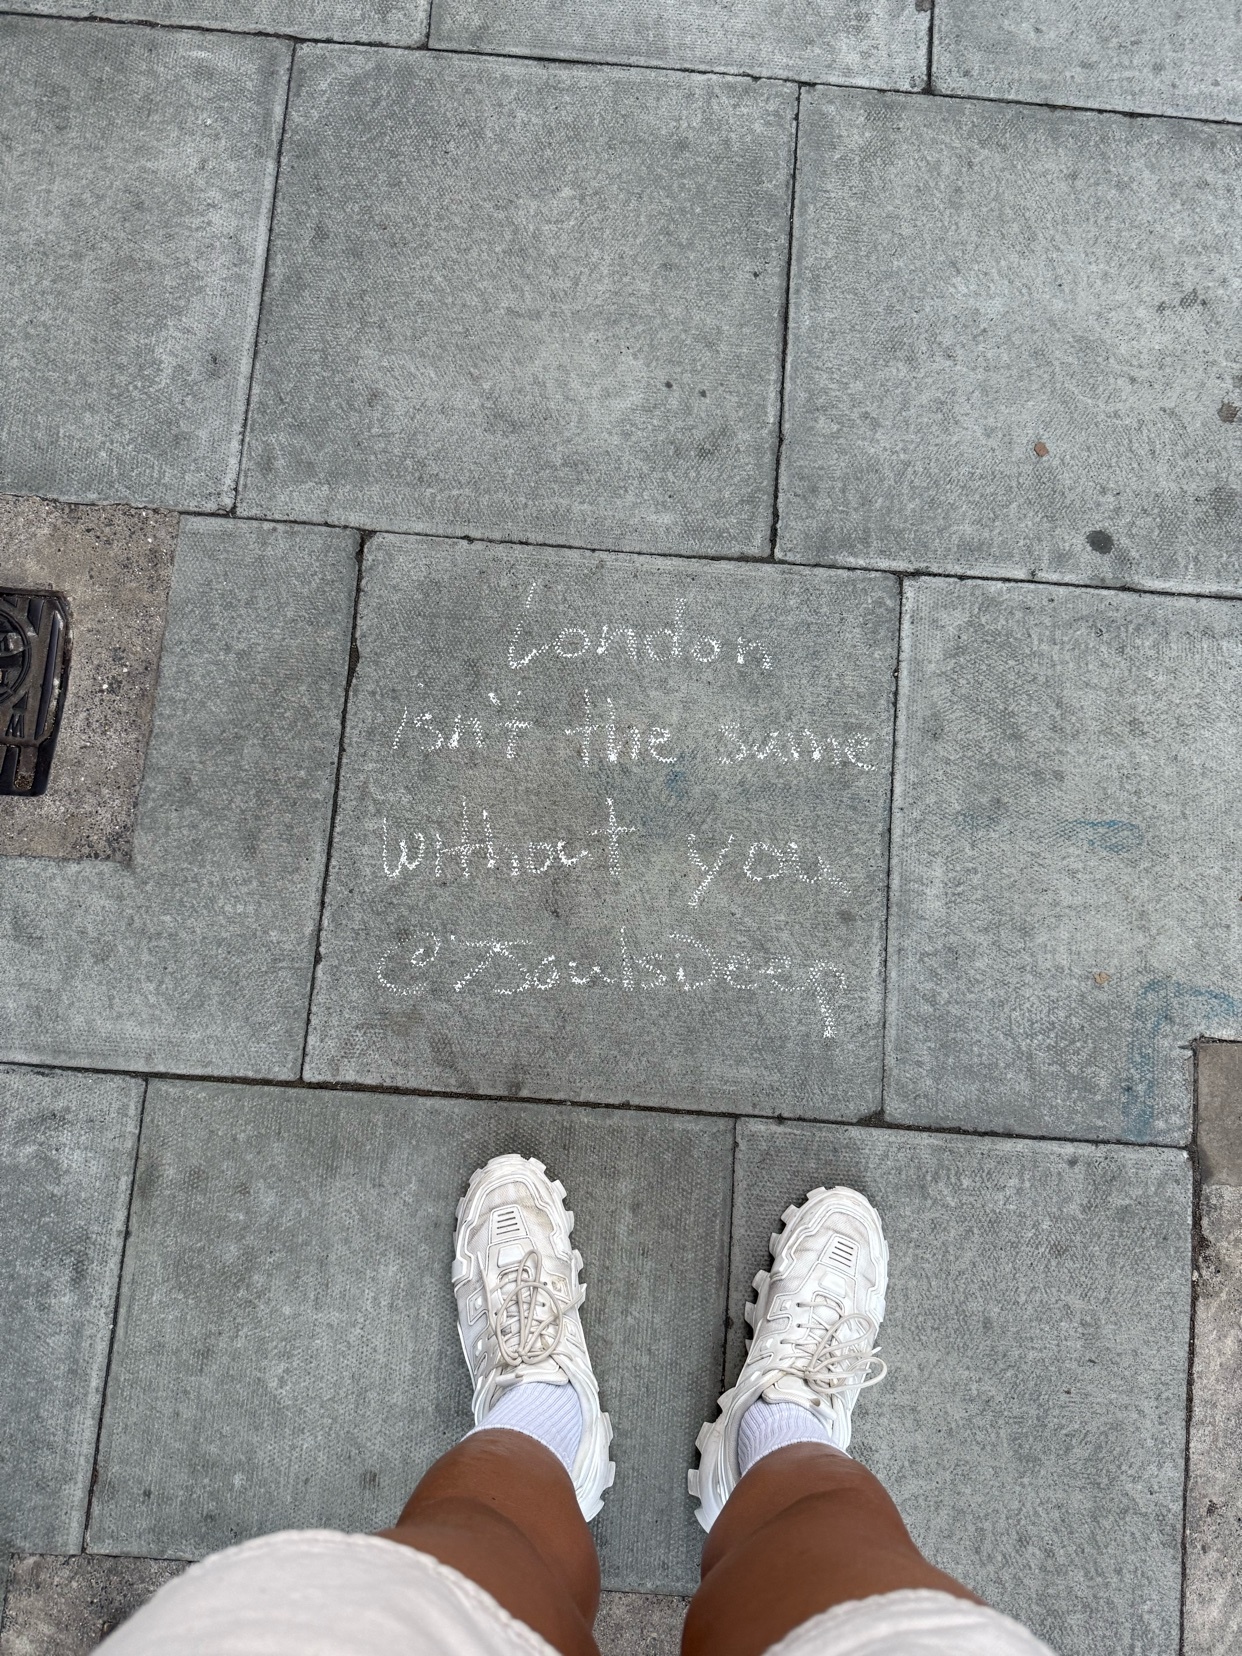 London
isn't the same
without you
@JSoulsDeep
M